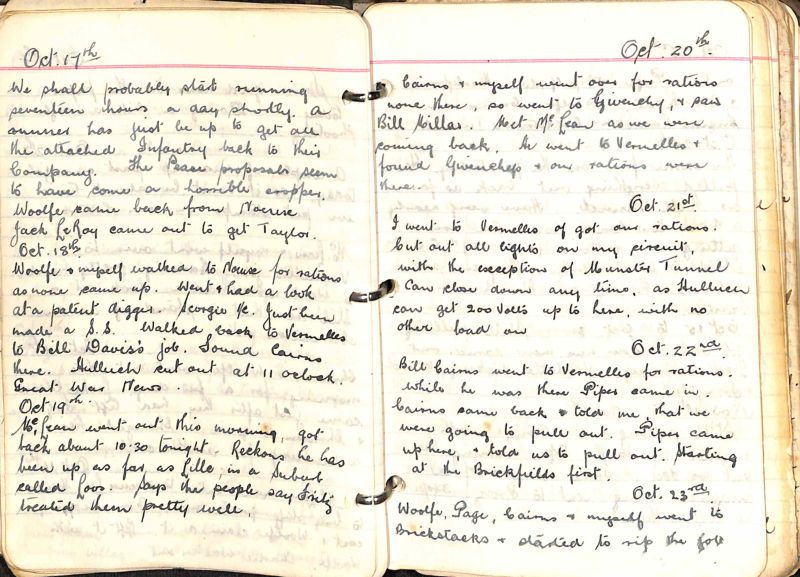 Oct. 17th
We shall probably start running
seventeen hours a day shortly. A
runner has just be up to get all
the attached Infantry back to their
Company. The Peace proposals seem
to have come a horrible cropper.
Woolfe came back from Noeuse
Jack LeRoy came out to get Taylor.
Oct. 18th
Woolfe & myself walked to Noeuse for rations
as none came up. Went & had a look
at a patent digger. Georgie K. just been
made a S.S. Walked back to Vermelles
to Bill Davis's job. Found Cairns
there. Hulluch cut out at 11 oclock.
Great War News.
Oct 19th.
McLean went out this morning, got
back about 10.30 tonight. Reckons he has
been up as far as Lille in a Suburb
called Loos. Says the people say Fritz
treated them pretty well.
Oct. 20th.
Cairns & myself went over for rations
none there, so went to Givenchy, & saw
Bill Millar. Met McLean as we were
coming back. He went to Vermelles &
found Givenchys & our rations were
there.
Oct. 21st
I went to Vermelles & got our rations.
Cut out all lights on my circuit,
with the exception of Munster Tunnel
Can close down any time, as Hulluch
can get 200 Volts up to here, with no
other load on
Oct. 22nd
Bill Cairns went to Vermelles for rations.
while he was there Piper came in.
Cairns came back & told me that we
were going to pull out. Piper came
up here, & told us to pull out. Starting
at the Brickfields first.
Oct. 23rd
Woolfe, Page, Cairns & myself went to
Brickstacks & started to rip the job